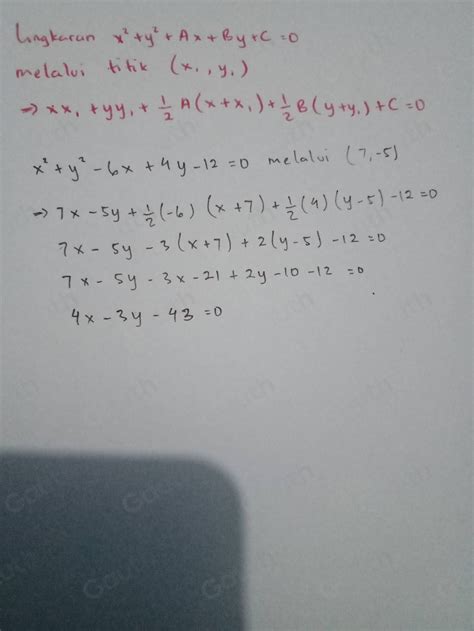 Lingkaran x² + y² + Ax + By + C = 0
melalui titik (x₁, y₁)
→ xx₁ + yy₁ + 1/2 A(x + x₁) + 1/2 B(y + y₁) + C = 0
x² + y² - 6x + 4y - 12 = 0 melalui (7, -5)
→ 7x - 5y + 1/2 (-6) (x + 7) + 1/2 (4) (y - 5) - 12 = 0
7x - 5y - 3(x + 7) + 2(y - 5) - 12 = 0
7x - 5y - 3x - 21 + 2y - 10 - 12 = 0
4x - 3y - 43 = 0